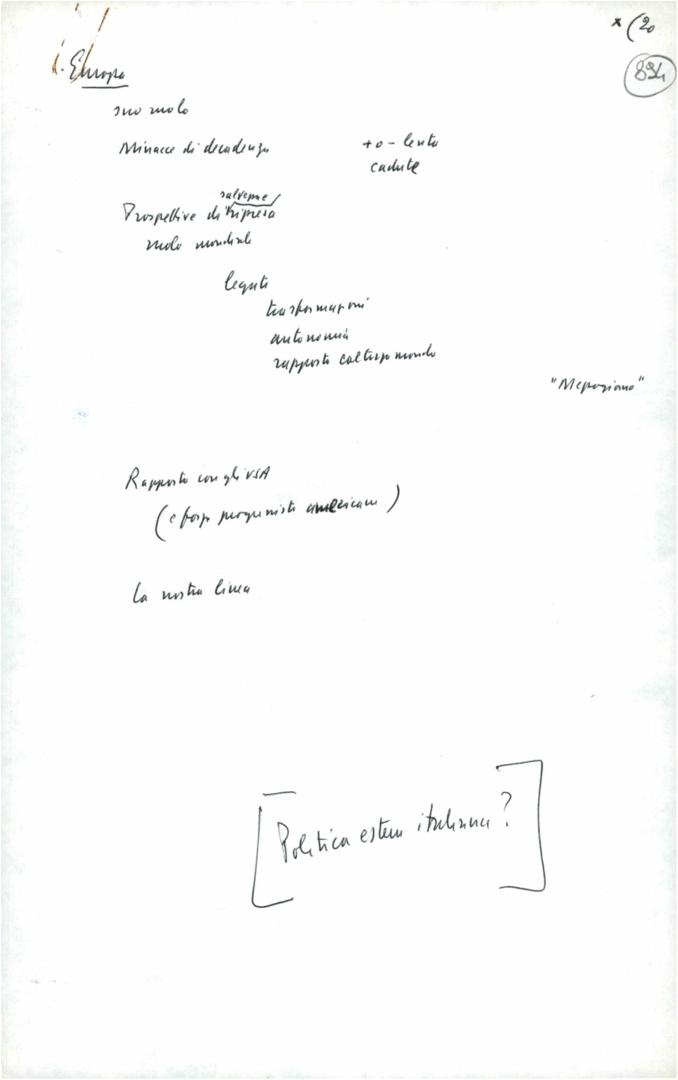 x (20
894
1. Europa
suo ruolo
Minacce di decadenza + o - lento
cadute
salvezza /
Prospettive di ripresa
ruolo mondiale
legate
trasformazioni
autonomia
rapporto col terzo mondo
Rapporto con gli USA
(e forze progressiste americane)
La nostra linea
[Politica estera italiana?]